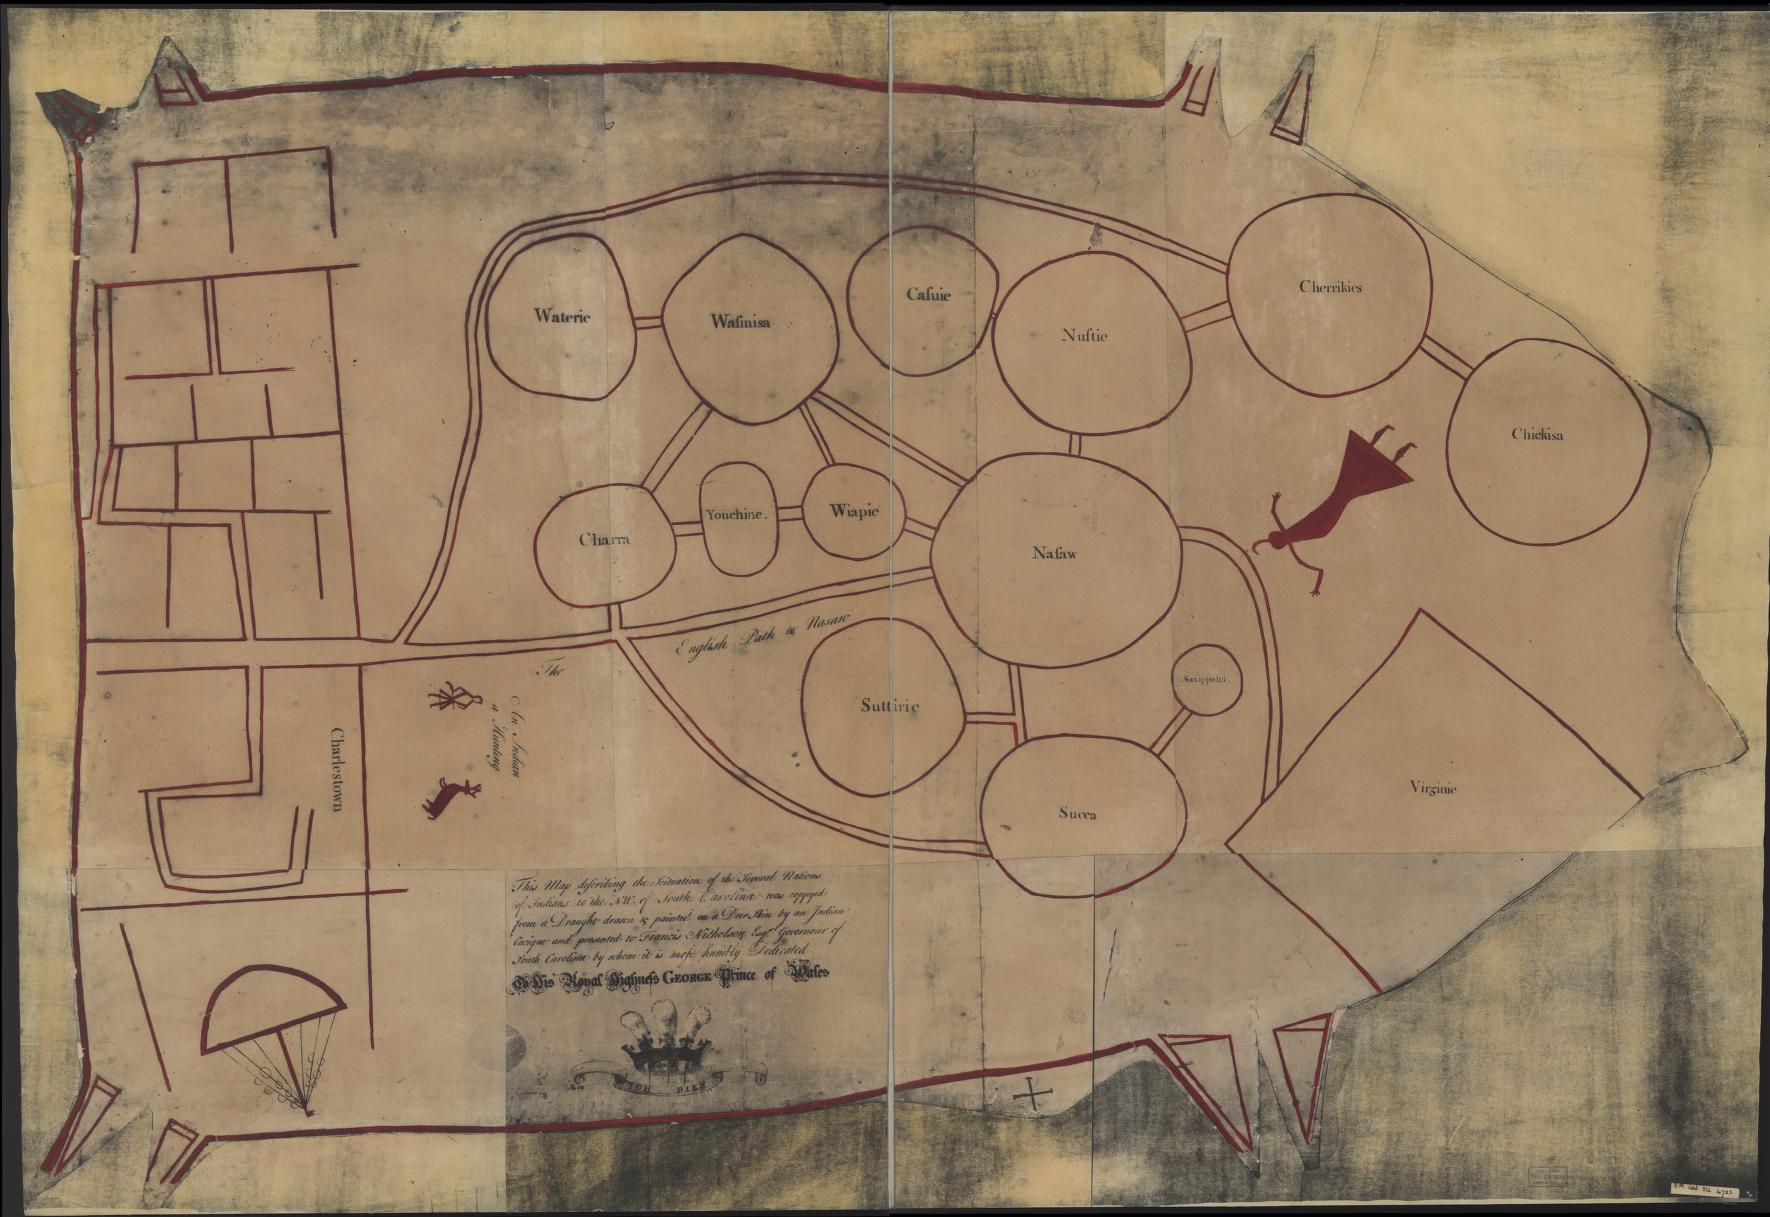 Waterie
Waſmisa
Caſuie
Nuſtie
Cherrikies
Chickisa
Charra
Youchine.
Wiapie
Naſaw
The English Path to Nasaw
Suttirie
Succa
Virginie
Charlestown
An Indian
a Hunting
This Map deſcribing the Scituation of the Several Nations
of Indians to the NW. of South Carolina was coppyed
from a Draught drawn & painted on a Deer Skin by an Indian
Cacique and presented to Francis Nicholson Esqr. Governour of
South Carolina by whom it is moſt humbly Dedicated
To His Royal Highneſs GEORGE Prince of Wales
ICH DIEN